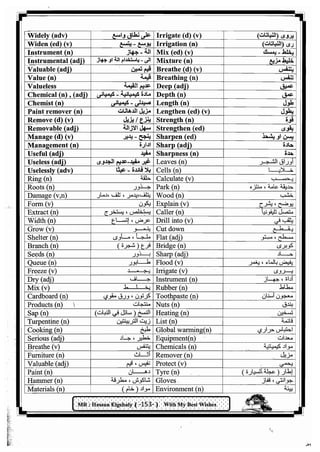 Widely (adv) على نطاق واسع Irrigate (d) (v) يروى (النباتات)
Widen (ed) (v) يوسع - يتسع Irrigation (n) رى (النباتات)
Instrument (n) الة - جهاز Mix (ed) (v) يخلط - يمسك
Instrumental (adj) الى - باستخدام الة او جهاز Mixture (n) خليط مزيج
Valuable (adj) قيم ثمين Breathe (d) (v) يتنفس
Value (n) قيمة Breathing (n) تنفس
Valueless عديم القيمة Deep (adj) عميق
Chemical (n) , (adj) مادة كيميائية - كيميائى Depth (n) عمق
Chemist (n) صيدلى - كيميائى Length (n) طول
Paint remover (n) مزيل الدهانات Lengthen (ed) (v) يطول
Remove (d) (v) ينزع / يزيل Strength (n) قوة
Removable (adj) سهل الازالة Strengthen (ed) يقوى
Manage (d) (v) ينجح - يدير Sharpen (ed) (v) يسن او يشحذ
Management (n) ادارة Sharp (adj) حاد
Useful (adj) مفيد Sharpness (n) حدة
Useless (adj) غير مفيد-عديم الجدوى Leaves (n) أوراق الشجر
Uselessly (adv) بلا فائدة - عبثا Cells (n) خلايا
Ring (n) حلقة Calculate (v) يحسب
Roots (n) جذور Park (n) حديقة عامة ، منتزه
Damage (v,n) يتلف-يدمر ، تلف -دمار Wood (n) خشب
Form (v) يكون Explain (v) يوضح ، يشرح
Extract (n) يستخلص ، يستخرج Caller (n) متصل تليفونياً
Width (n) عرض ، إتساع Drill into (v) يثقب في
Grow (v) ينمو Cut down يقطع
Shelter (n) ملجأ ، مأوى Flat (adj) مسطح ، مستو
Branch (n) فرع ( شجرة ) Bridge (n) كوبرى
Seeds (n) بذور Sharp (adj) حاد
Queue (n) طابور Flood (v) يفيض بالماء ، يغمر
Freeze (v) يجمد Irrigate (v) يروى
Dry (adj) جاف Instrument (n) أداة ، جهاز
Mix (v) يخلط Rubber (n) مطاط
Cardboard (n) كرتون ، ورق مقوي Toothpaste (n) معجون أسنان
Products (n) منتجات Nuts (n) بندق
Sap (n) النسغ ( سائل في النبات) Heating (n) تسخين
Turpentine (n) زيت التربينتين List (n) قائمة
Cooking (n) طبخ Global warming(n) احتباس حراري
Serious (adj) خطير ، جاد Equipment(n) معدات
Breathe (v) يتنفس Chemicals (n) مواد كيميائية
Furniture (n) أثاث Remover (n) مزيل
Valuable (adj) نفيس ، قيم Protect (v) يحمى
Paint (n) دهان Tyre (n) إطار ( عجلة السيارة )
Hammer (n) شاكوش ، مطرقة Gloves جوانتي ، قفاز
Materials (n) مواد ( خام ) Environment (n) بيئة
MR : Hassan Elgohaly ( -153- ) With My Best Wishes